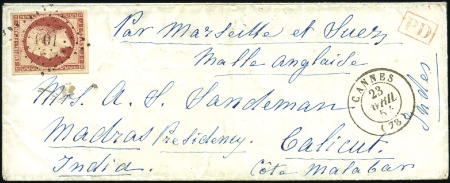 Par Marseille et Suez
PD
Malle anglaise
CANNES
23
AVRIL
(78)
Mrs. A. S. Sandeman
Madras Presidency. Calicut
India Côte Malabar
Indes